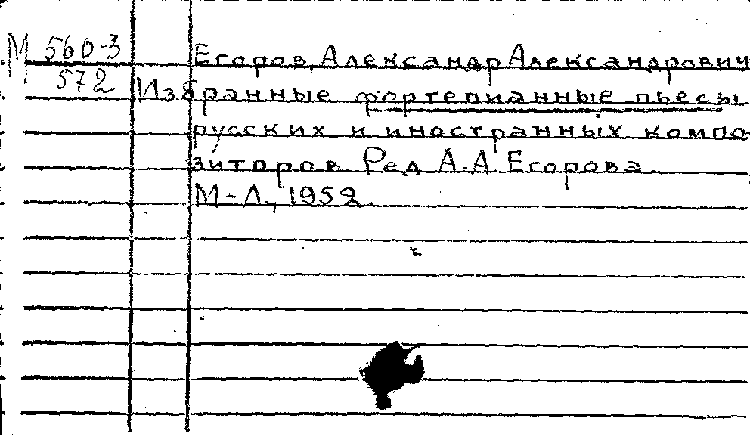 М 560-3
572
Егоров, Александр Александрович
Избранные фортепианные пьесы
русских и иностранных компо
зиторов. Ред. А.А. Егорова.
М-Л., 1952.